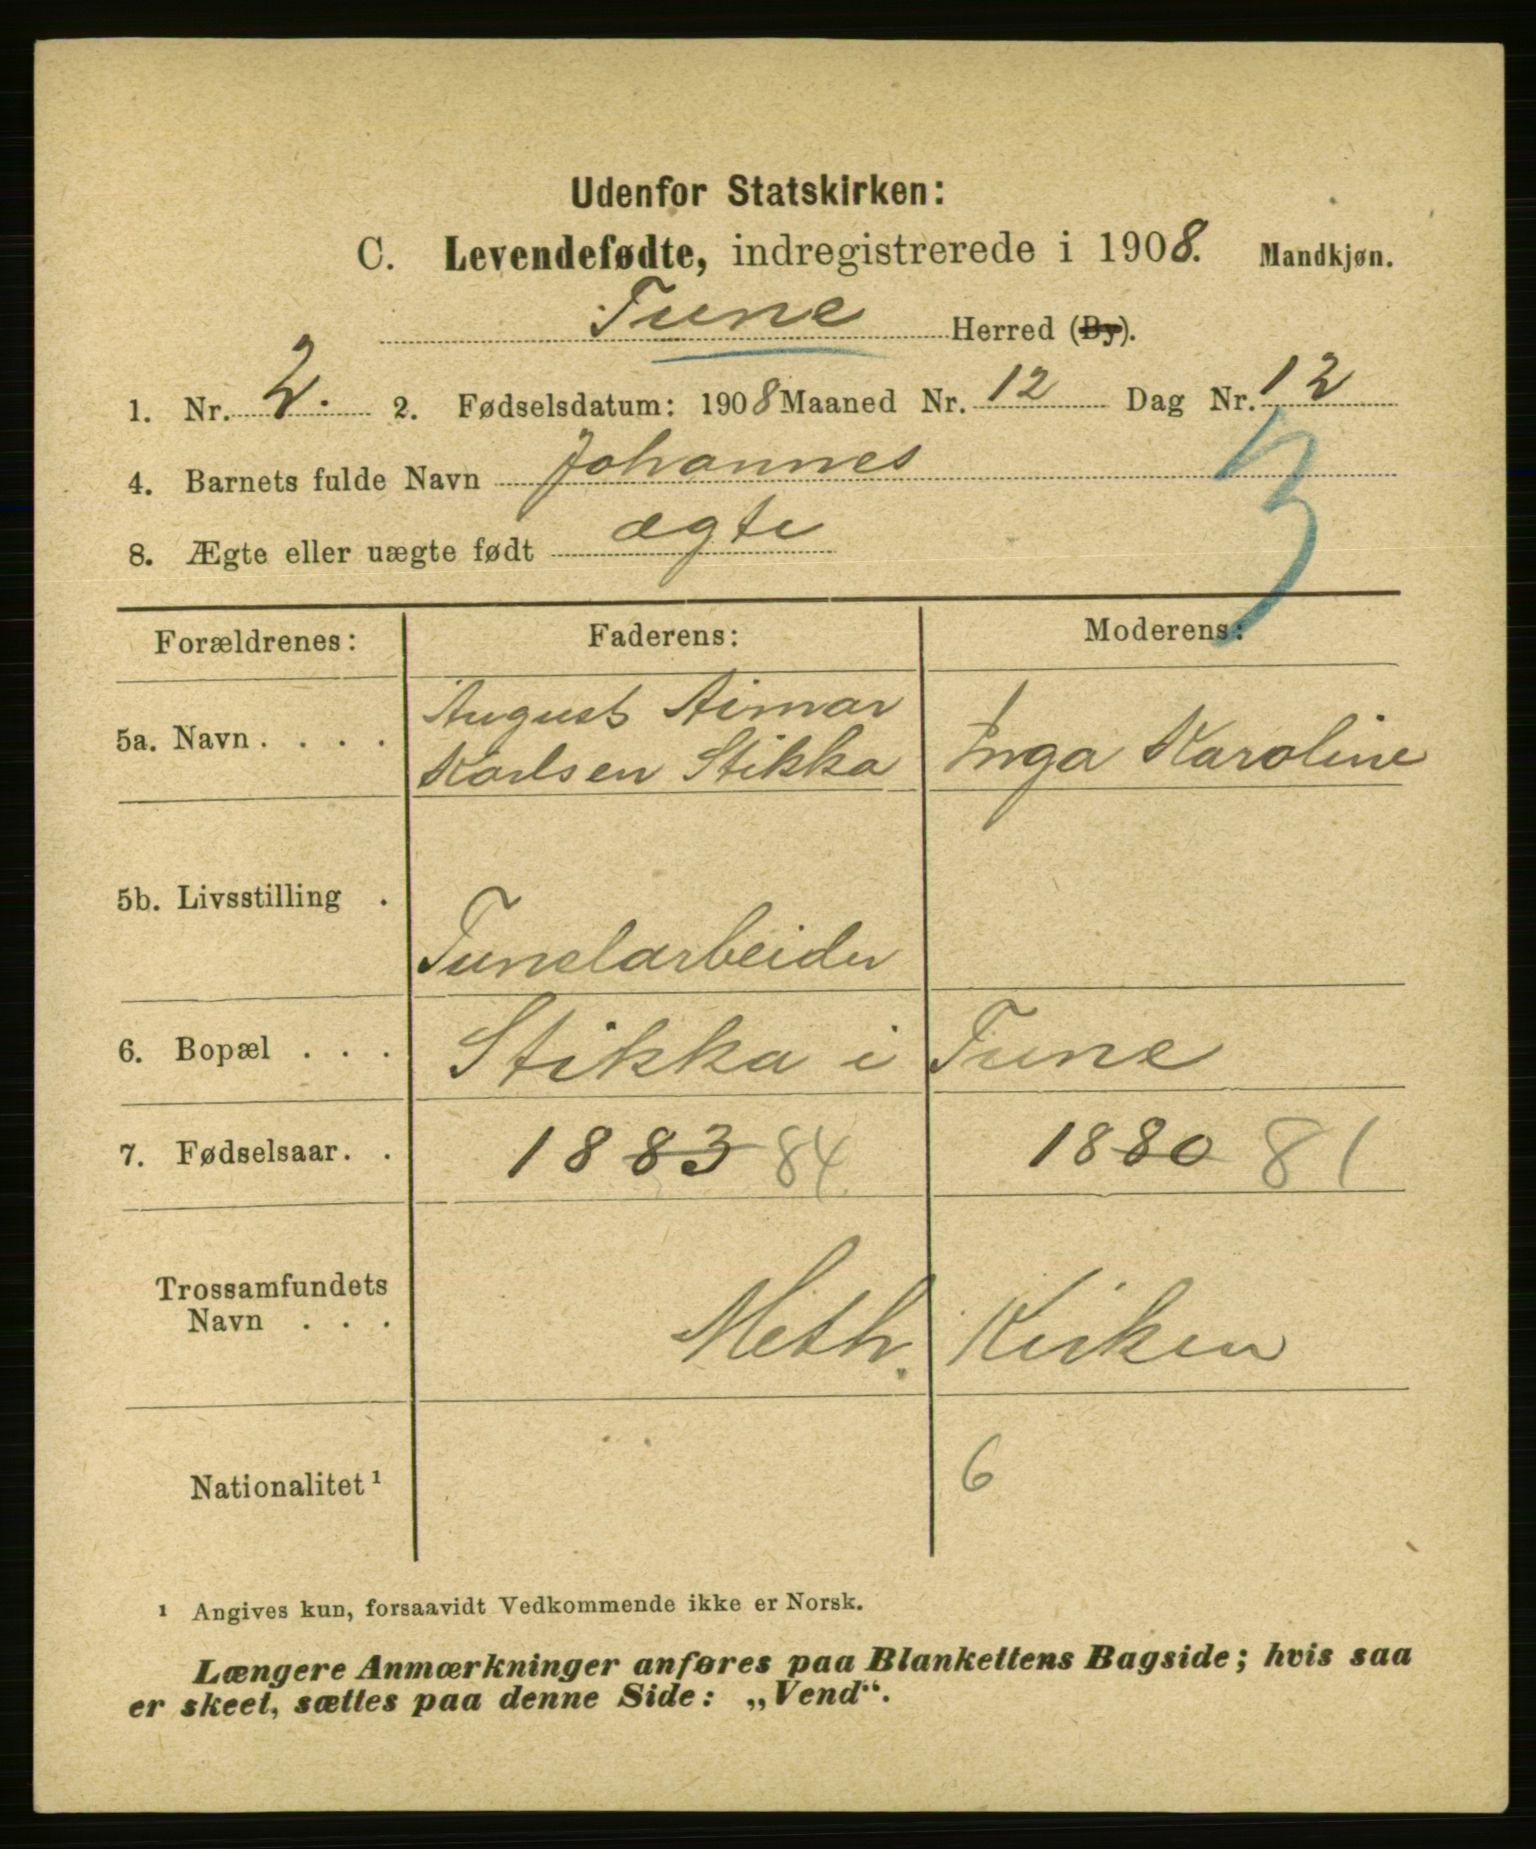 Udenfor Statskirken:
C. Levendefødte, indregistrerede i 1908. Mandkjøn.
Tune Herred (By).
1. Nr. 2. 2. Fødselsdatum: 1908 Maaned Nr. 12 Dag Nr. 12
4. Barnets fulde Navn Johannes
3
8. Ægte eller uægte født ægte
Forældrenes: Faderens: Moderens:
5a. Navn . . . . August Aimar Karlsen Stikka Inga Karoline
5b. Livsstilling . Tunelarbeider
6. Bopæl . . . Stikka i Tune
7. Fødselsaar. . 1883 84 1880 81
Trossamfundets
Navn . . . Meth. Kirken
Nationalitet¹ 6
¹ Angives kun, forsaavidt Vedkommende ikke er Norsk.
Længere Anmærkninger anføres paa Blankettens Bagside; hvis saa
er skeet, sættes paa denne Side: „Vend“.